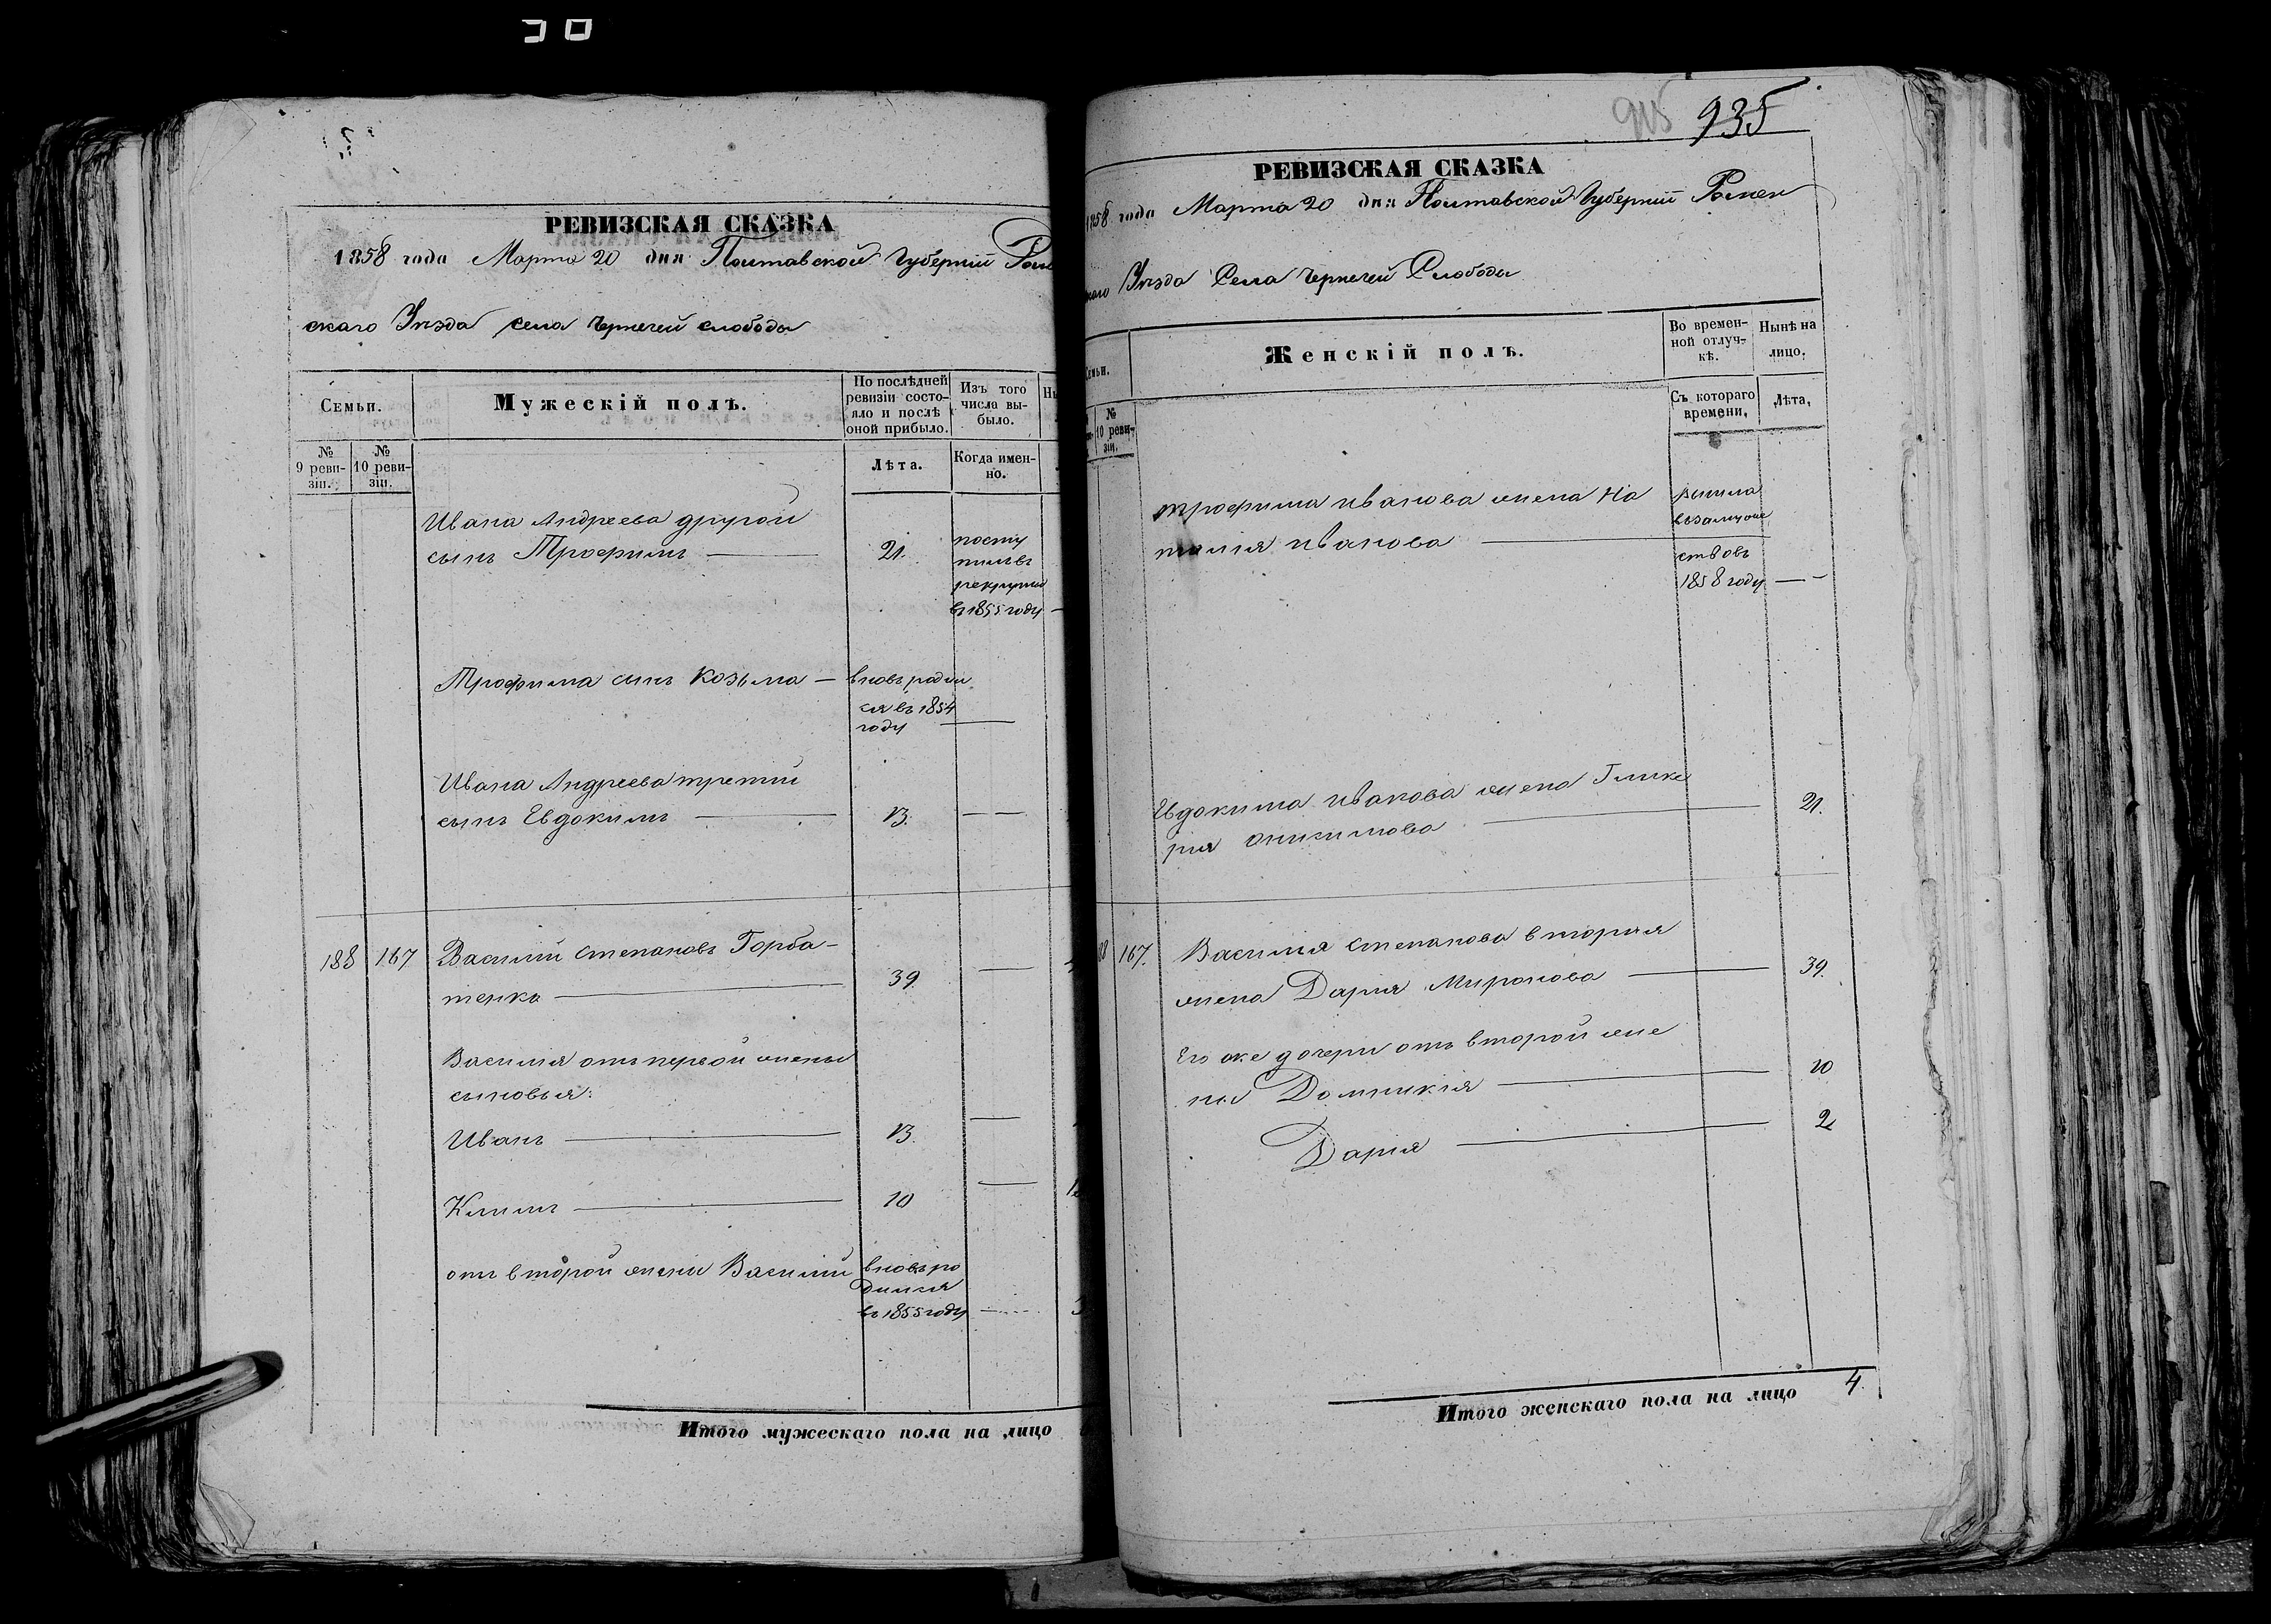 РЕВИЗСКАЯ СКАЗКА
1858 года Марта 20 дня Полтавской Губерніи Ром
скаго Уѣзда села Чернечей слободы
Семьи.
Мужескій полъ.
По послѣдней ревизіи состояло и послѣ оной прибыло.
Изъ того числа выбыло.
№ 9 ревизіи.
№ 10 ревизіи.
Лѣта.
Когда именно.
Ивана Андреева другой
сынъ Трофимъ — 21.
посту
пилъ въ
рекруты
въ 1855 году
Трофима сынъ Козьма — вновь родил
ся въ 1854
году
Ивана Андреева третий
сынъ Евдокимъ — 13.
188 167 Василий Степановъ Горба-
тенко — 39
Василия отъ первой жены
сыновья:
Иванъ — 13.
Климъ — 10
отъ второй жены Василий вновь ро
дился
въ 1855 году
Итого мужескаго пола на лицо
935
РЕВИЗСКАЯ СКАЗКА
1858 года Марта 20 дня Полтавской Губерніи Ромен
скаго Уѣзда Села Чернечей Слободы
Семьи.
Женскій полъ.
Во временной отлучкѣ.
Нынѣ на лицо.
№ 10 ревизіи.
Съ котораго времени,
Лѣта,
Трофима Иванова жена На
талия Иванова
вышла
въ замуже
ство въ
1858 году
Евдокима Иванова жена Глике
рия Онисимова — 21.
167. Василия Степанова вторая
жена Дария Миронова — 39.
Его же дочери отъ второй же
ны Домникия — 10
Дария — 2
Итого женскаго пола на лицо 4.